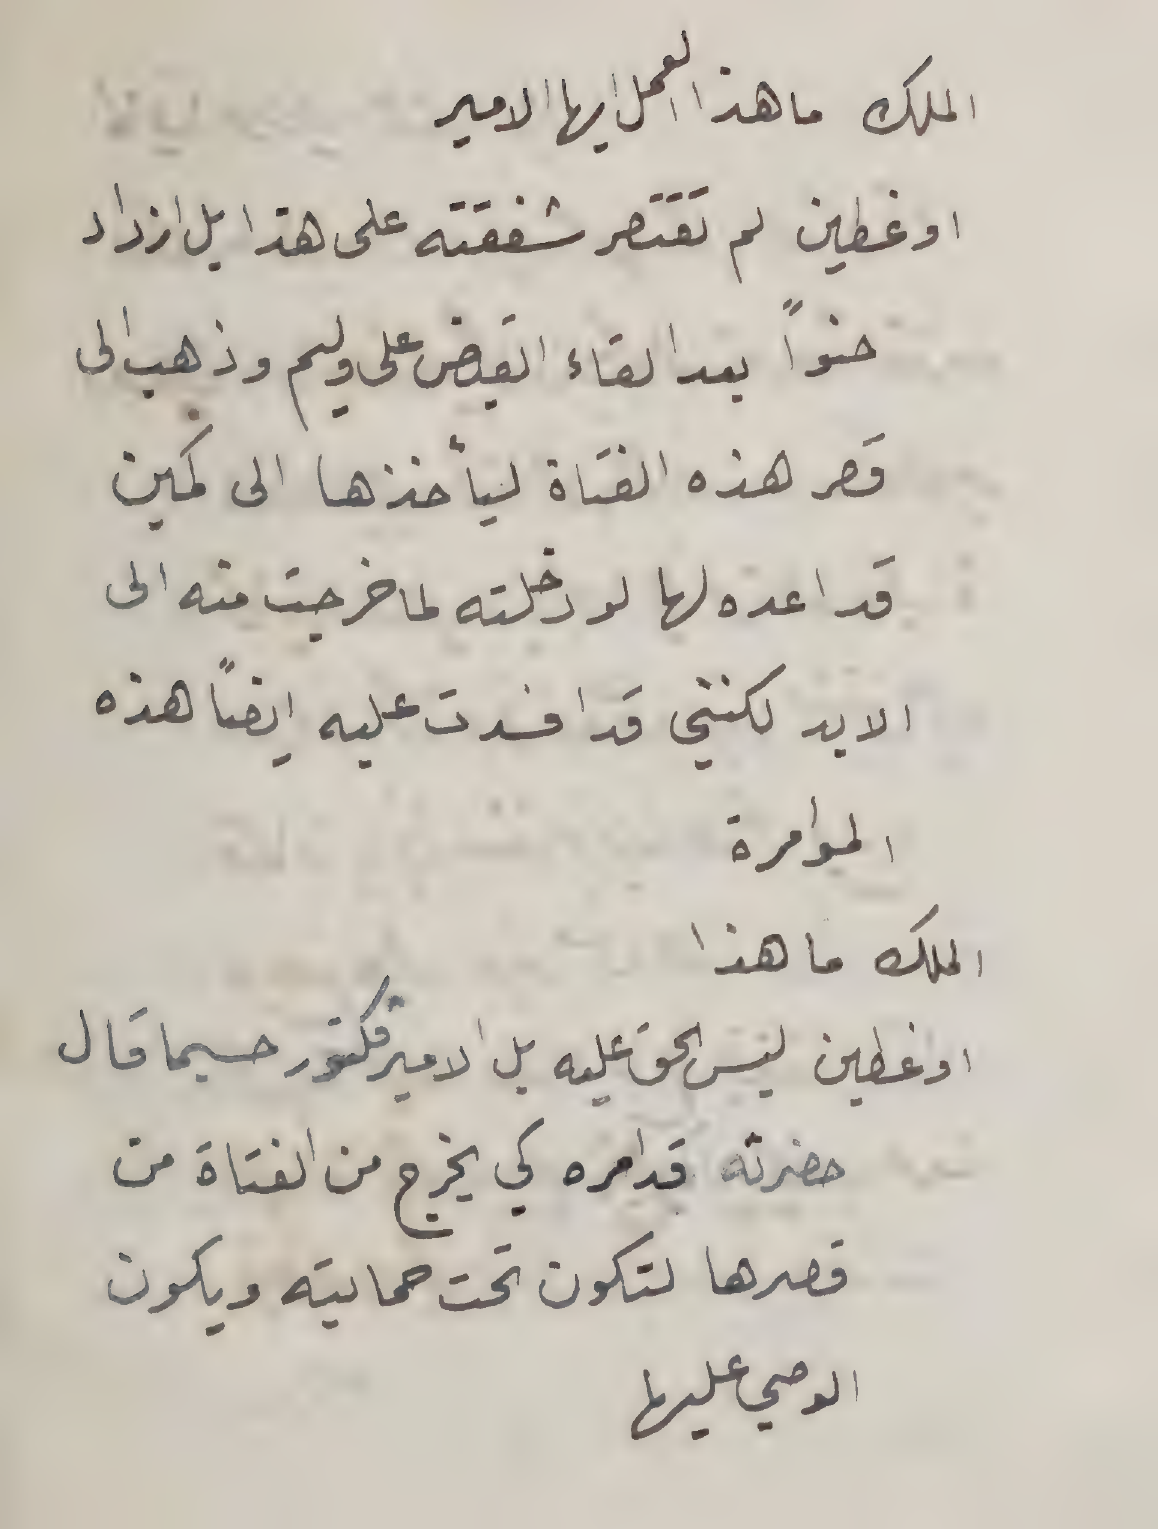 الملك ما هذا العمل ايها الامير
اوغطين لم تقتصر شفقته على هذا بل ازداد
حنواً بعد القاء القبض على وليم وذهب الى
قصر هذه الفتاة ليأخذها الى كمين
قد اعده لها لو دخلته لما خرجت منه الى
الابد لكنني قد افسدت عليه ايضاً هذه
الموامرة
الملك ما هذا
اوغطين ليس الحق عليه بل الامير فكتور حسبما قال
حضرته قد امره كي يخرج من الفتاة من
قصرها لتكون تحت حمايته ويكون
الوصي عليها